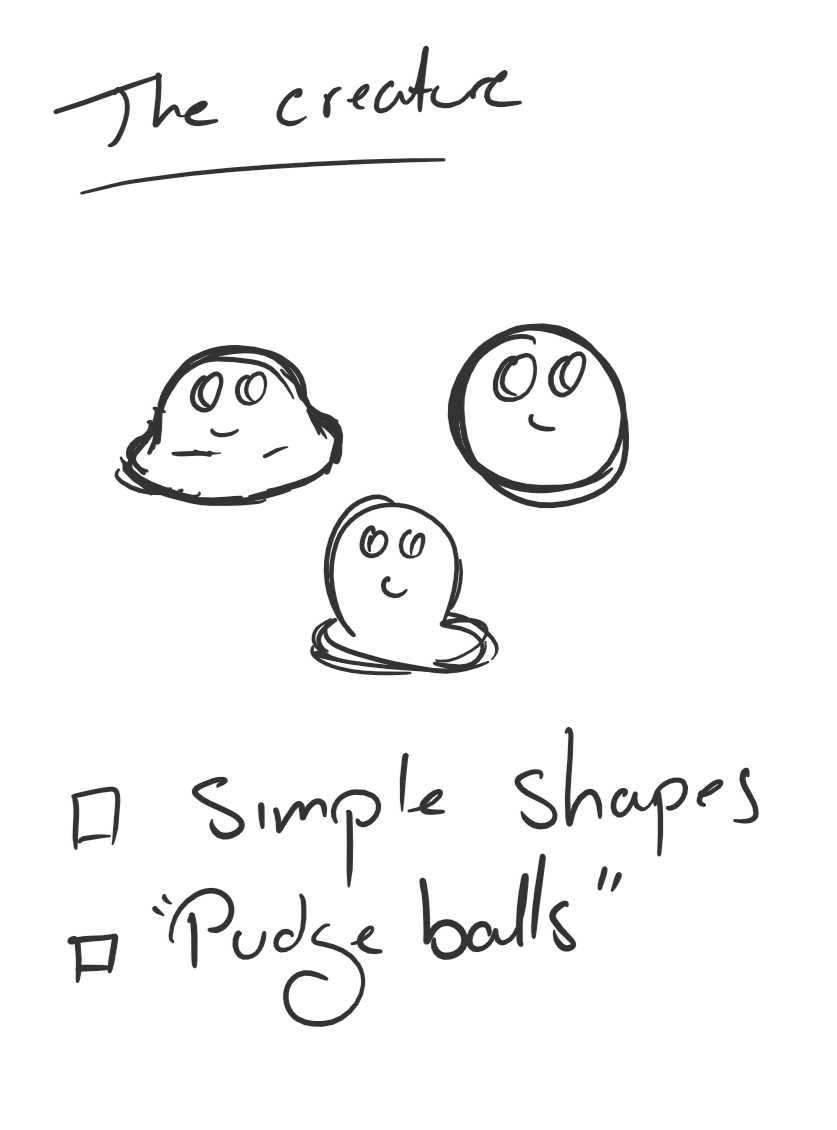 The creature
☐ Simple shapes
☐ "Pudge balls"